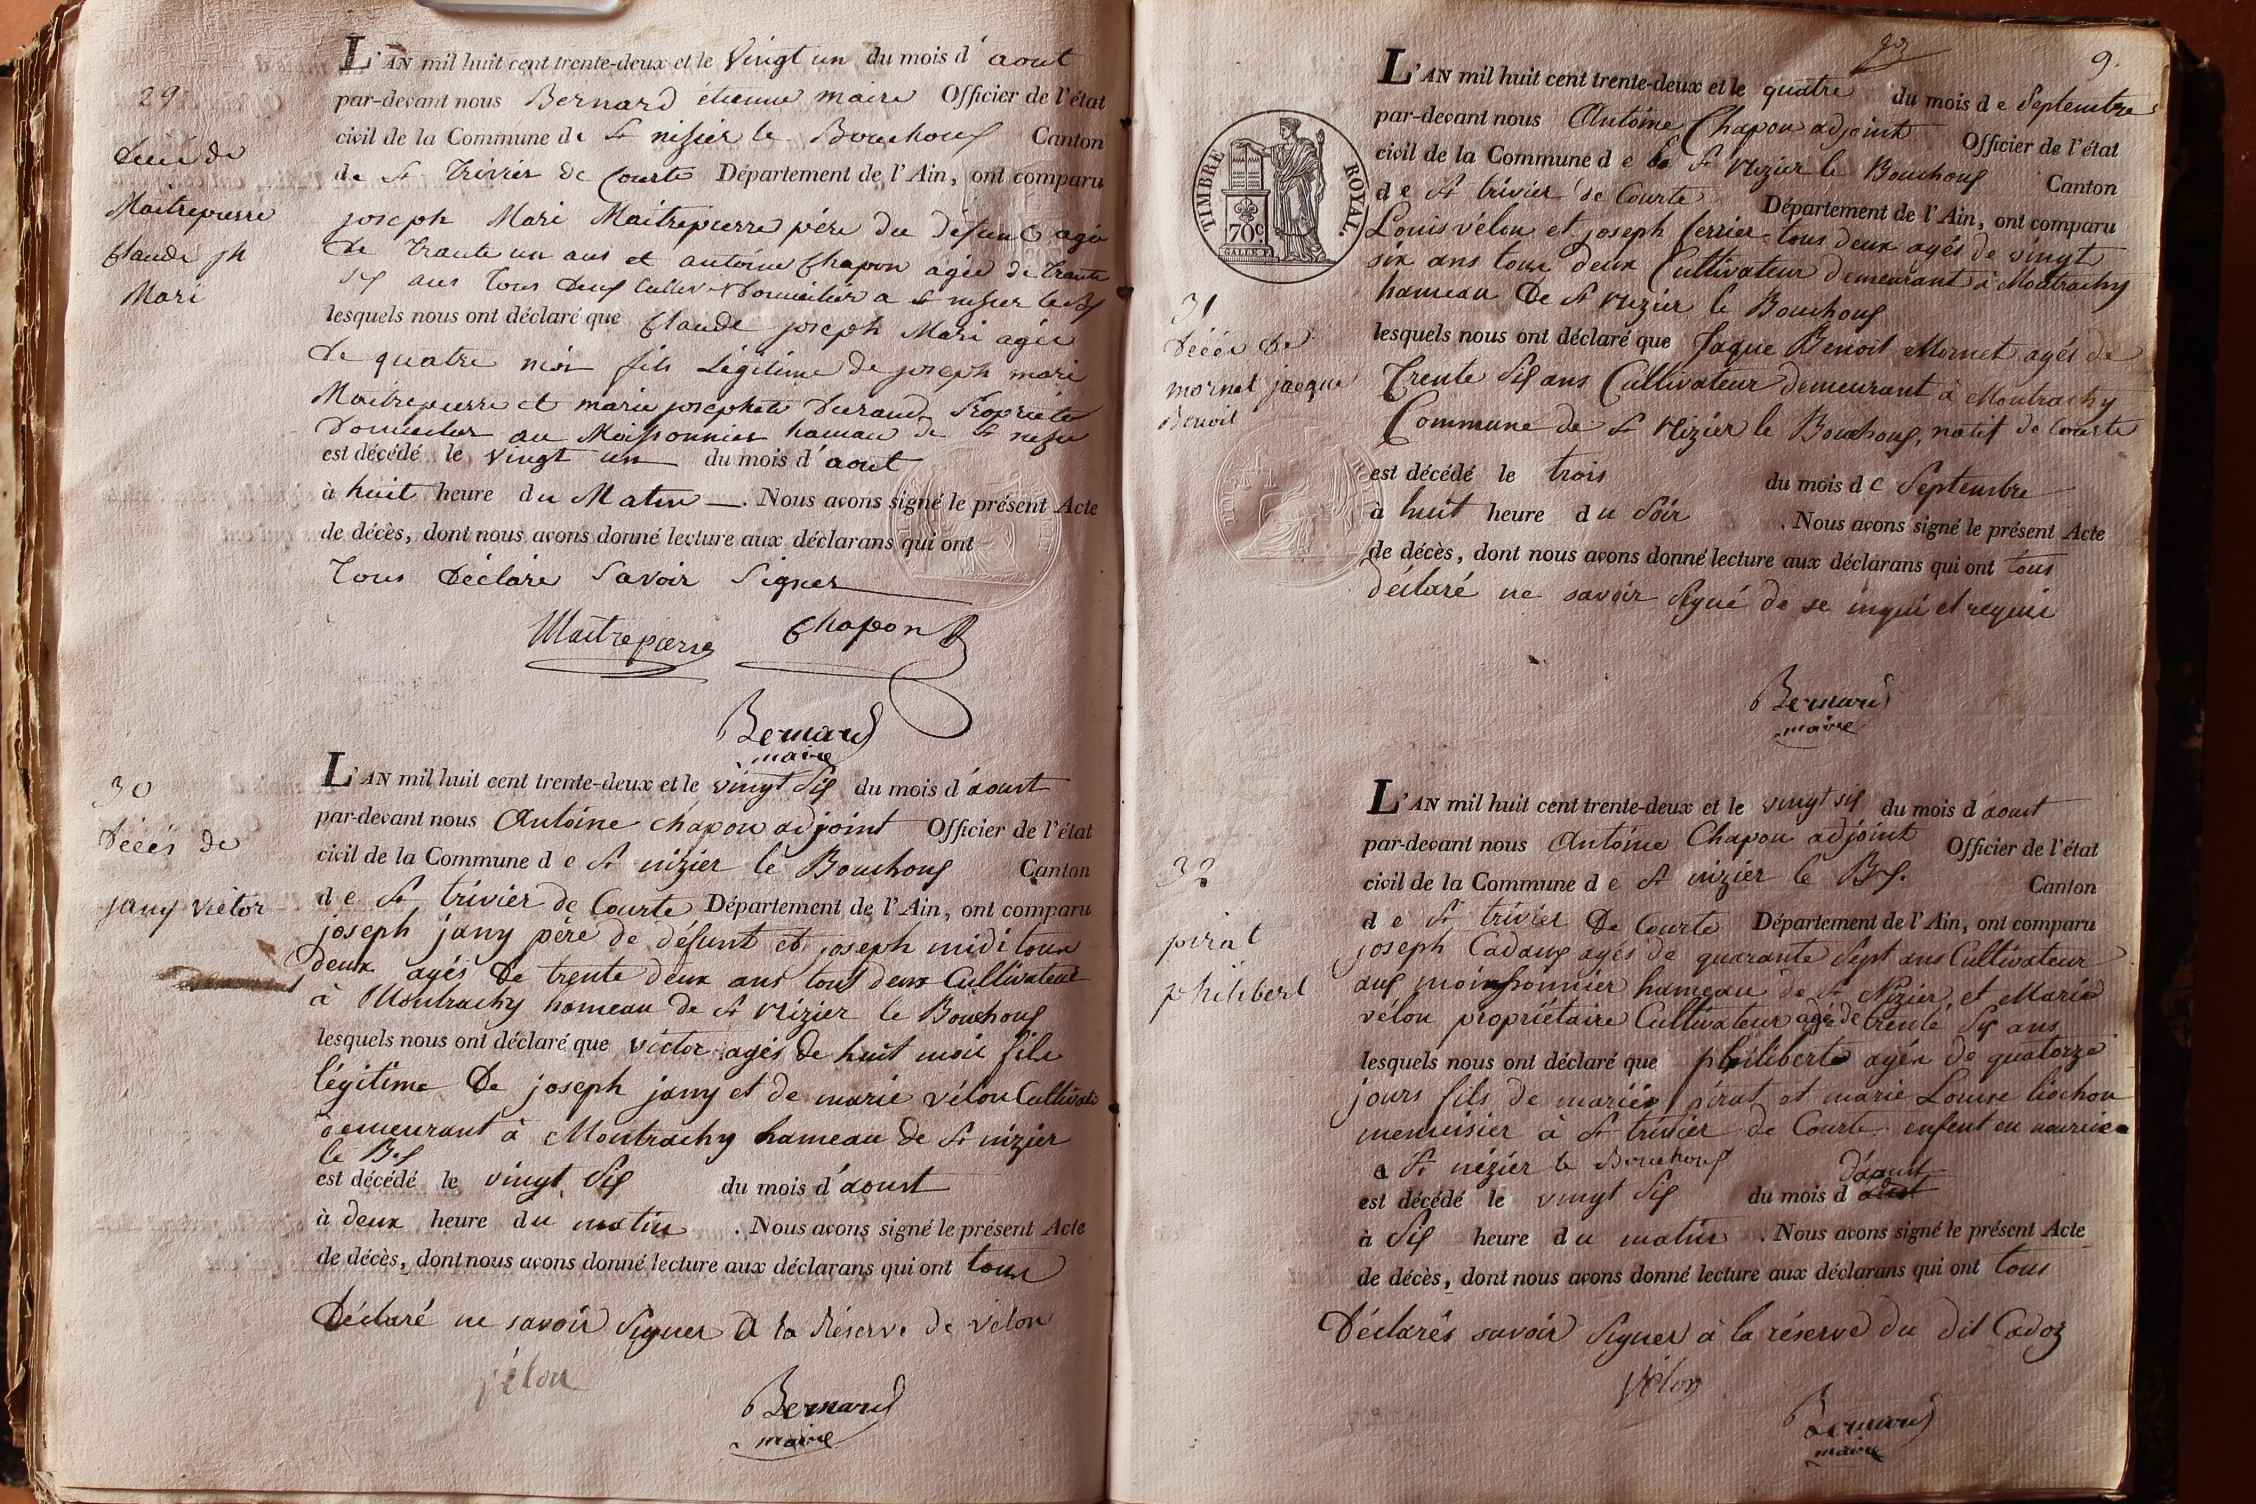 29
décé de
Maitrepierre
Claude jh
Mari
L'AN mil huit cent trente-deux et le vingt un du mois d'aout
par-devant nous Bernard etienne maire Officier de l'état
civil de la Commune de St nisier le Bouchoux Canton
de St Trivier de Courte Département de l'Ain, ont comparu
joseph Mari Maitrepierre pére du défunt agé
de trante un ans et antoine Chapon agée de trante
six ans tous deux Domicilier a St nisier le
lesquels nous ont déclaré que Claude joseph Mari agée
de quatre fils légitime de joseph mari
Maitrepierre et marie josephete Durand
au Moissonnier hameau de St
est décédé le vingt un du mois d'aout
à huit heure du Matin . Nous avons signé le présent Acte
de décès, dont nous avons donné lecture aux déclarans qui ont
tous déclaré savoir signer
Maitrepierre Chapon
Bernard
maire
30
Décés de
jany victor
L'AN mil huit cent trente-deux et le vingt six du mois d'aoust
par-devant nous Antoine chapon adjoint Officier de l'état
civil de la Commune de St nizier le Bouchoux Canton
de St trivier de Courte Département de l'Ain, ont comparu
joseph jany père de défunt et joseph midi tous
deux agés de trente deux ans tous deux Cultivateur
à Montrachy hameau de St Nizier le Bouchoux
lesquels nous ont déclaré que victor agés de huit mois fils
légitime de joseph jany et de marie vélon
demeurant à Montrachy hameau de St nizier
le Bx
est décédé le vingt six du mois d'aoust
à deux heure du matin . Nous avons signé le présent Acte
de décès, dont nous avons donné lecture aux déclarans qui ont tous
Déclaré ne savoir signer à la réserve de vélon
vélon
Bernard
maire
9.
TIMBRE ROYAL.
70c
31
Décés de
mornet jacque
Benoit
L'AN mil huit cent trente-deux et le quatre du mois de Septembre
par-devant nous Antoine Chapon adjoint Officier de l'état
civil de la Commune de St Nizier le Bouchoux Canton
de St trivier de Courte Département de l'Ain, ont comparu
Louis vélon et joseph ferrier tous deux agés de vingt
six ans tous deux Cultivateur demeurant à Montrachy
hameau de St Nizier le Bouchoux
lesquels nous ont déclaré que Jaque Benoit Mornet agés de
Trente six ans Cultivateur demeurant à Montrachy
Commune de St Nizier le Bouchoux, natif de Courte
est décédé le trois du mois de Septembre
à huit heure du Soir . Nous avons signé le présent Acte
de décès, dont nous avons donné lecture aux déclarans qui ont tous
déclaré ne savoir signé de se inqui et requi
Bernard
maire
32
pirat
philibert
L'AN mil huit cent trente-deux et le vingt six du mois d'aoust
par-devant nous Antoine Chapon adjoint Officier de l'état
civil de la Commune de St nizier le Bx. Canton
de St trivier de Courte Département de l'Ain, ont comparu
joseph Cadoux agés de quarante sept ans Cultivateur
aux moinssonnier hameau de St Nizier, et Marie
vélon propriétaire Cultivateur agé de trente six ans
lesquels nous ont déclaré que philiberte agés de quatorze
jours fils de pirat et marie Louise liochon
menuisier à St trivier de Courte enfent en nourice
a St nizier le Bouchoux d'aoust
est décédé le vingt six du mois d
à six heure du matin . Nous avons signé le présent Acte
de décès, dont nous avons donné lecture aux déclarans qui ont tous
Déclarés savoir signer à la réserve du dit Cadoz
vélon
Bernard
maire